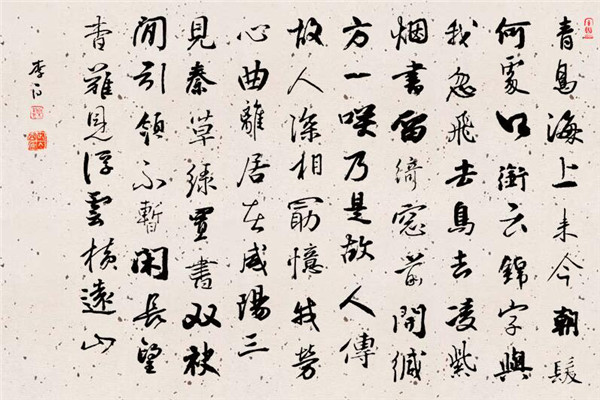 青鳥海上来今朝髮
何處口銜云錦字與
我忽飛去鳥去凌紫
烟書留綺窓前開緘
方一咲乃是故人傳
故人深相勖憶我勞
心曲離居在咸陽三
見秦草緑置書双袂
間引領不暫閑長望
杳難見浮雲橫遠山
李白